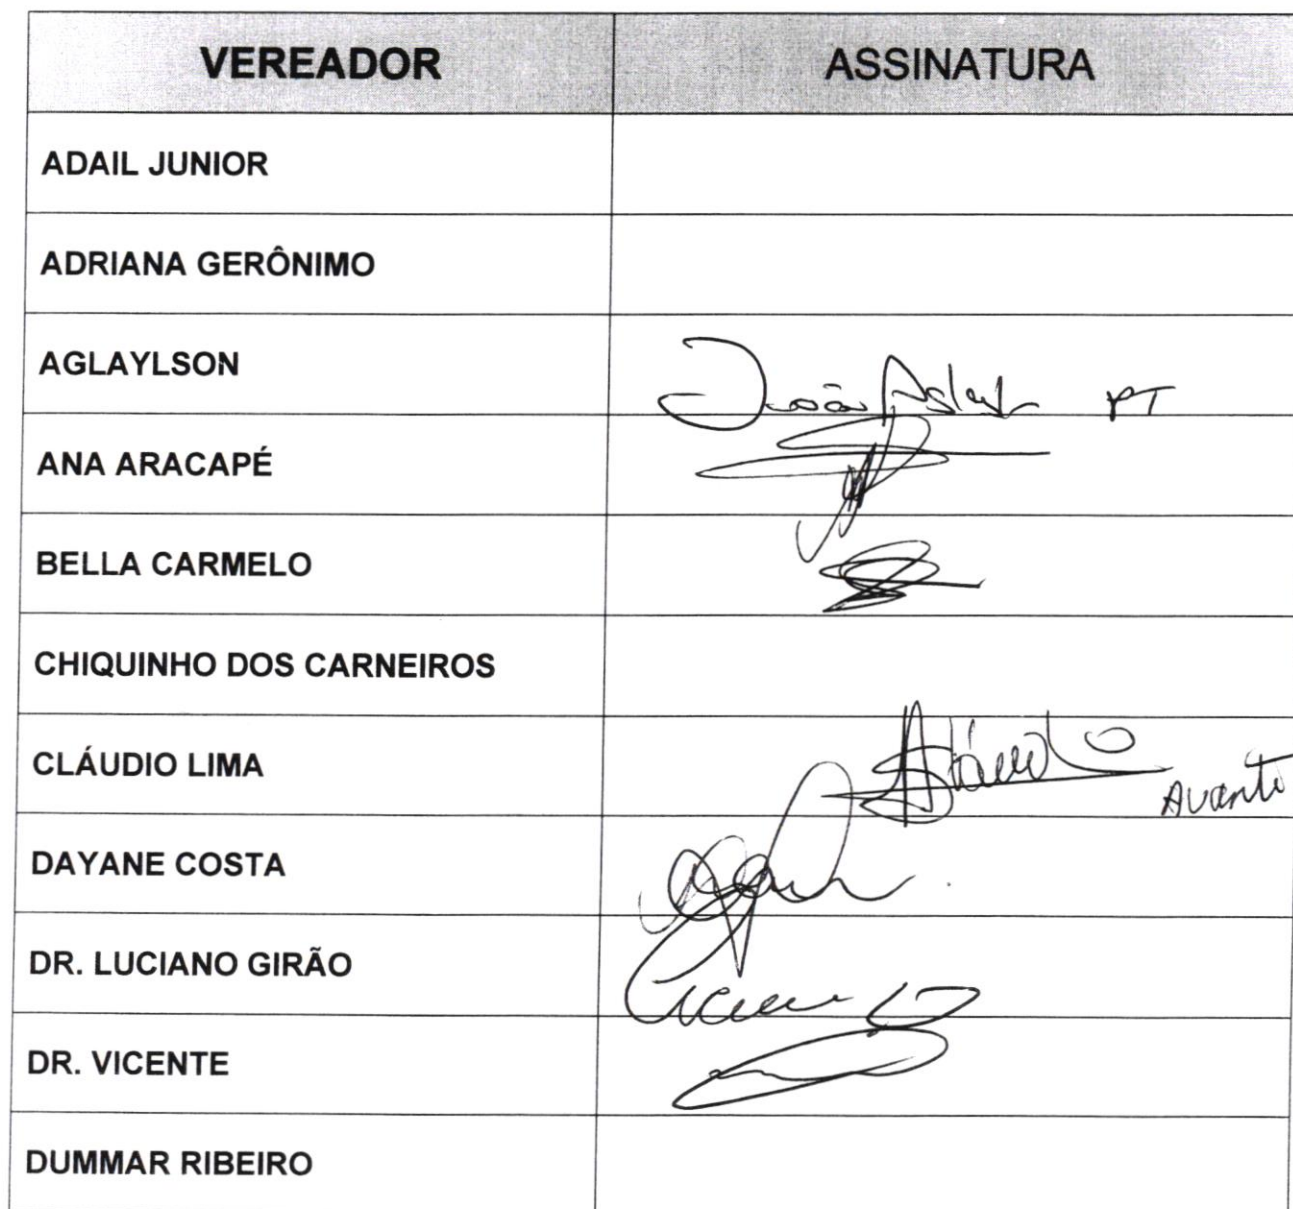 VEREADOR ASSINATURA
ADAIL JUNIOR
ADRIANA GERÔNIMO
AGLAYLSON João PT
ANA ARACAPÉ
BELLA CARMELO
CHIQUINHO DOS CARNEIROS
CLÁUDIO LIMA
DAYANE COSTA
DR. LUCIANO GIRÃO
DR. VICENTE
DUMMAR RIBEIRO